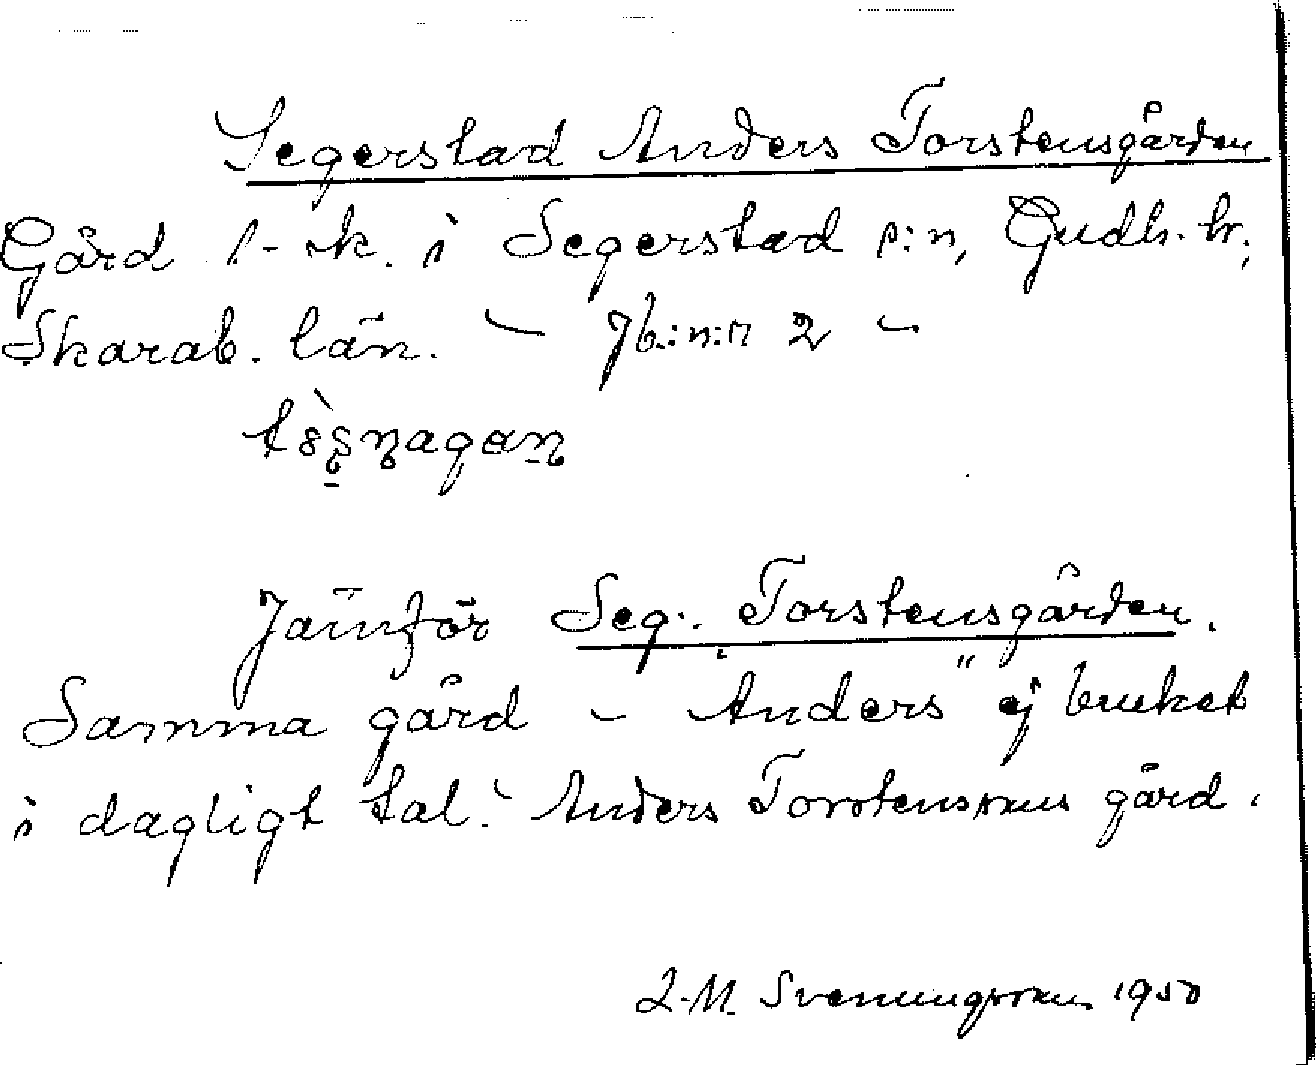 Segerstad Anders Torstensgården
Gård i Segerstad s:n, Gudh. hr,
Skarab. län. — Jb.:n:r 2 —
Jämför Seg. Torstensgården.
Samma gård – "Anders" ej brukat
i dagligt tal. – Anders Torstenssons gård.
Svenungsson 1950